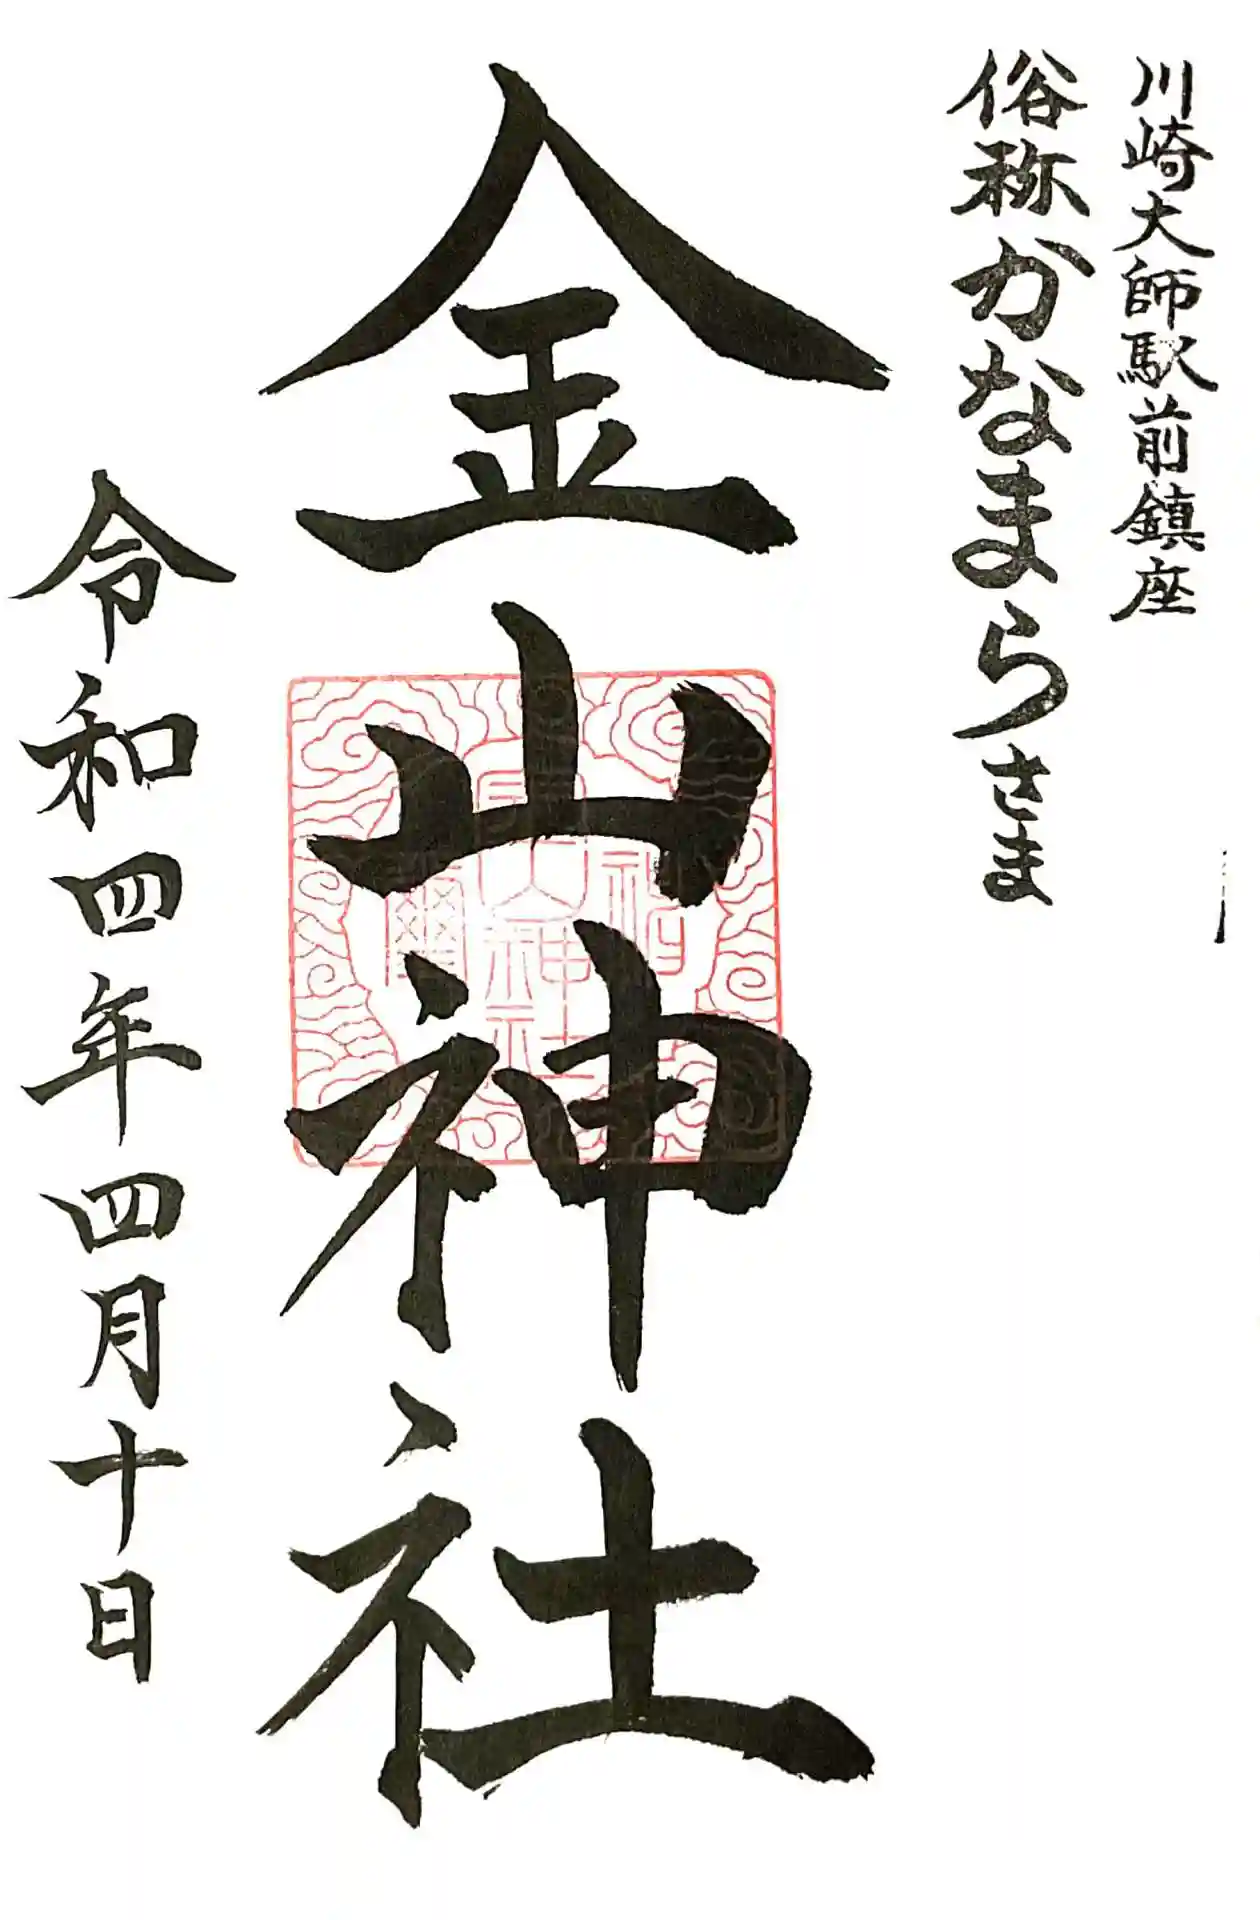 川崎大師駅前鎮座
俗称かなまらさま
金山神社
令和四年四月十日